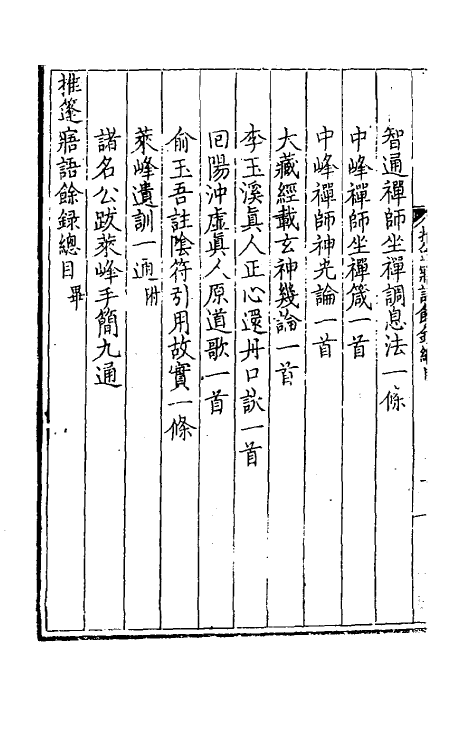 智通禪師坐禪調息法一條
中峰禪師坐禪箴一首
中峰禪師神光論一首
大藏經載玄神幾論一首
李玉溪眞人正心還丹口訣一首
回陽沖虛眞人原道歌一首
俞玉吾註陰符引用故實一條
萊峰遺訓一通附
諸名公跋萊峰手簡九通
推篷寤語餘録總目畢